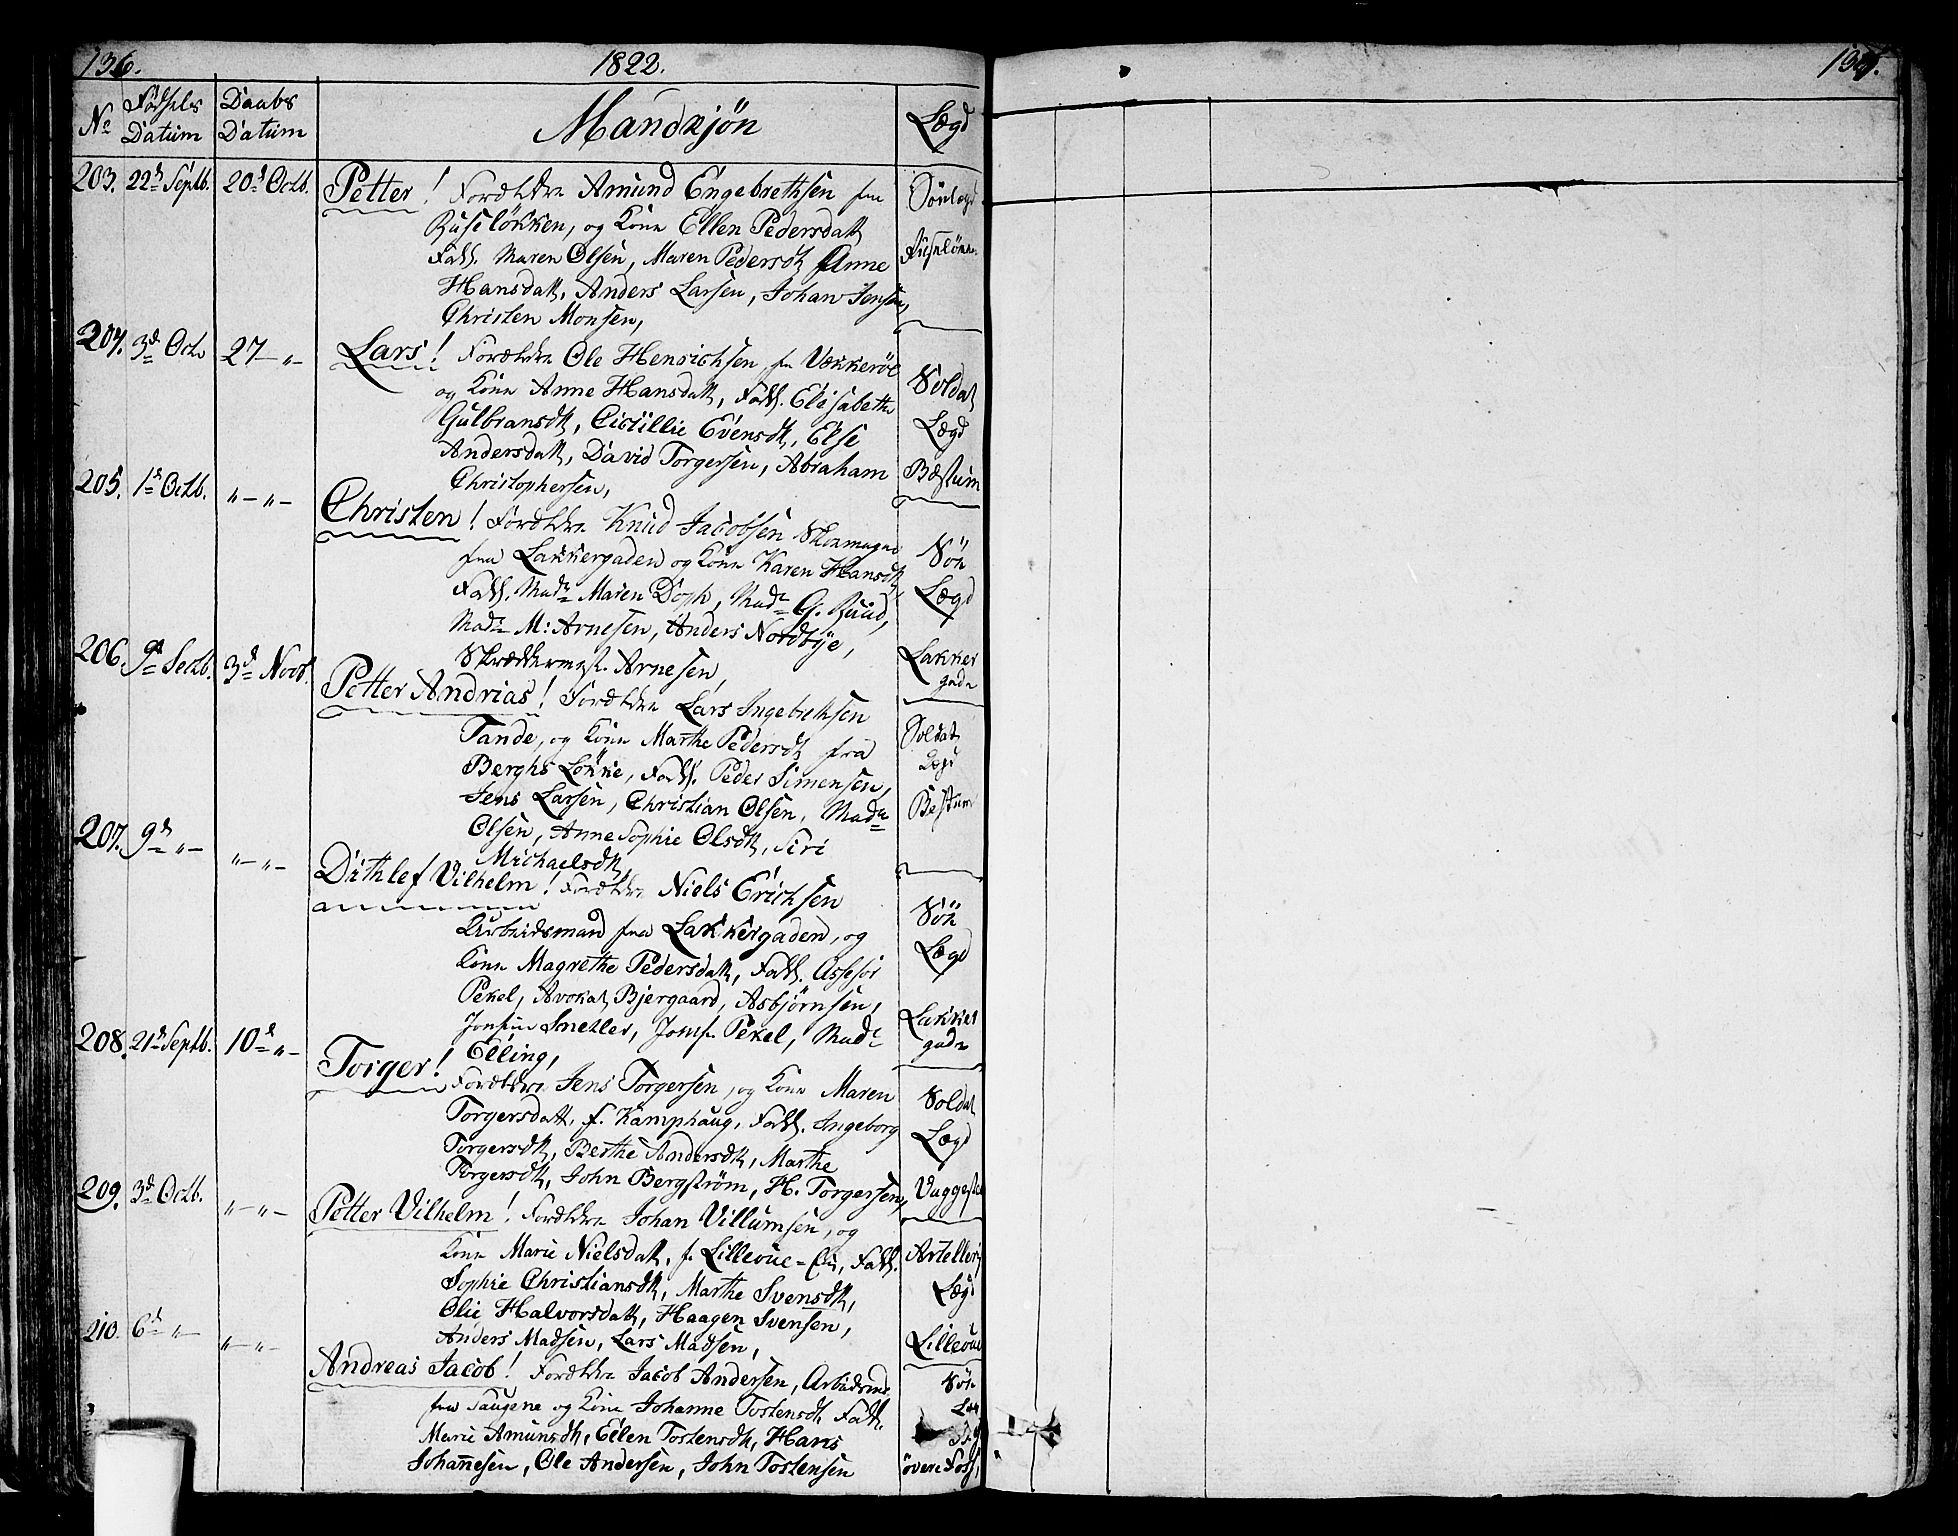 136.
1822.
No
Fødsels Datum
Daabs Datum
Mandkjön
Lægd
203. 22d Septb. 20d Octb.
Petter! Forældre Amund Engebrethsen fra
Ruseløkken, og Kone Ellen Pedersdatt
Fadd. Maren Olsen, Maren Pedersdt, Anne
Hansdatt, Anders Larsen, Johan Jensen,
Christen Monsen,
Sönlægd
204. 3d Octb 27 "
Lars! Forældre Ole Henrichsen, fra Vækkeröe
og Kone Anne Hansdatt, Fadd. Elisabeth
Gulbransdt, Cicillie Evensdt, Else
Andersdatt, David Torgersen, Abraham
Christophersen,
Soldat
Lægd
Bæstum
205. 1d Octb. " "
Christen! Forældre Knud Jacobsen Skomager
fra Lakkergaden og Kone Karen Hansdt,
Fadd. Made Maren Doph, Made G. Ruud,
Made M: Arnesen, Anders Nordbye,
Skræddermest. Arnesen,
Sön
Lægd
Lakker
gade
206. 9d 3d Novb.
Petter Andrias! Forældre Lars Ingebrethsen
Tande, og Kone Marthe Pedersdt fra
Berghs Løkke, Fadd. Peder Simensen,
Jens Larsen, Christian Olsen, Made
Olsen, Anne Sophie Olsdt, Siri
Michaelsdt,
Soldat
Lægd
Bestum
207. 9d " " "
Dithlef Vilhelm! Forældre Niels Erichsen
Arbeidsmand fra Lakkergaden, og
Kone Magrethe Pedersdatt, Fadd. Assesor
Pekel, Avokat Bjergaard, Asbjørnsen,
Jomfrue Smetler, Jomf. Pekel, Made
Elling,
Sön
Lægd
Lakker
gade
208. 21d Septb. 10d "
Torger!
Forældre Jens Torgersen, og Kone Maren
Torgersdatt, f. Kamphaug, Fadd. Ingeborg
Torgersdt, Berthe Andersdt, Marthe
Torgersdt, John Bergstrøm, H. Torgersen,
Soldat
Lægd
209. 3d Octb. " "
Petter Vilhelm! Forældre Johan Villumsen, og
Kone Marie Nielsdatt, f. Lillevue-Eie, Fadd.
Sophie Christiansdt, Marthe Svensdt,
Olie Halvorsdatt, Haagen Svensen,
Anders Madsen, Lars Madsen,
Artelleri
Lægd
Lillevue
210. 6d " " "
Andreas Jacob! Forældre Jacob Andersen, Arbeidsmd
fra Saugene og Kone Johanne Tostensdt, Fadd.
Marie Amunsdt, Ellen Tostensdt, Hans
Johannesen, Ole Andersen, John Tostensen
Sön
övere Foss